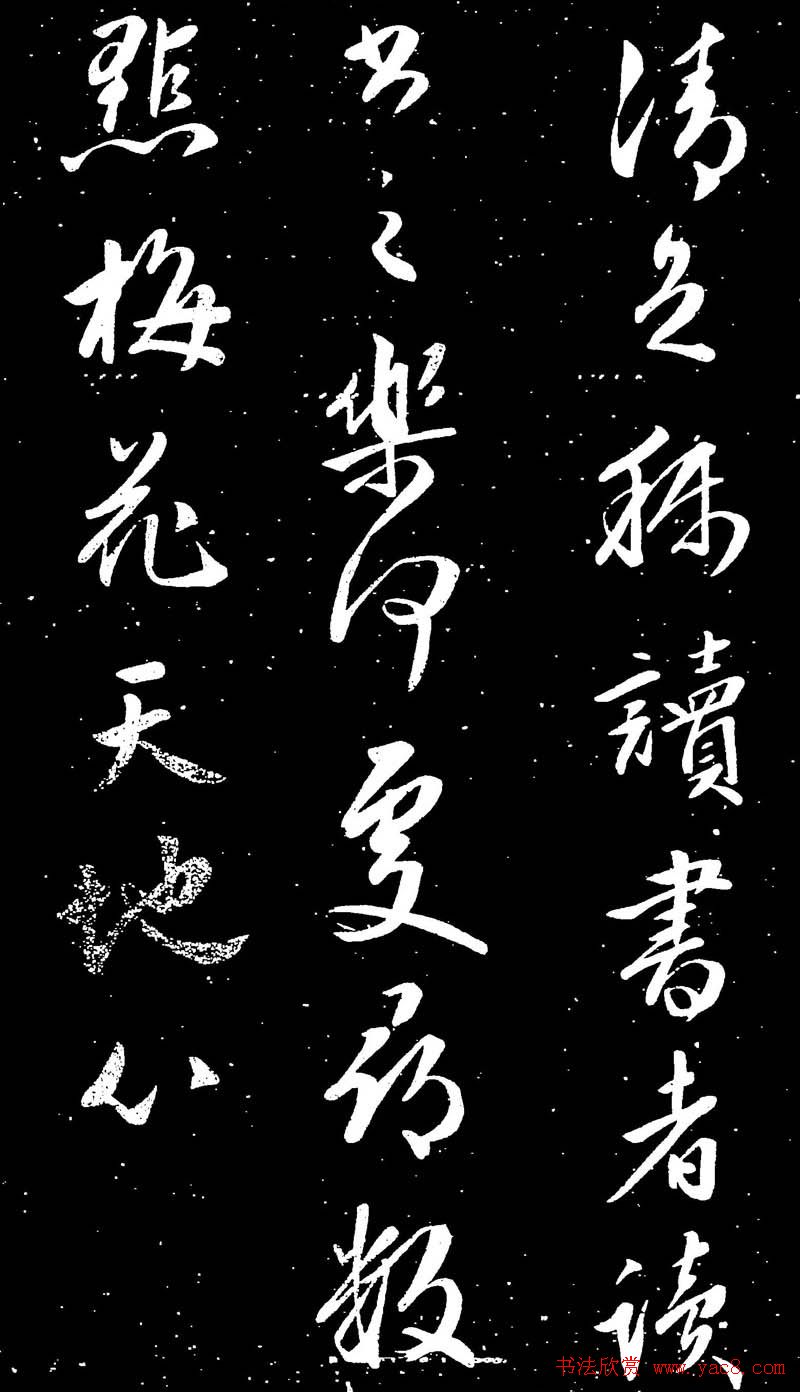 清足稱讀書者讀
書之樂何處尋數
點梅花天地心
书法欣赏 www.yac8.com